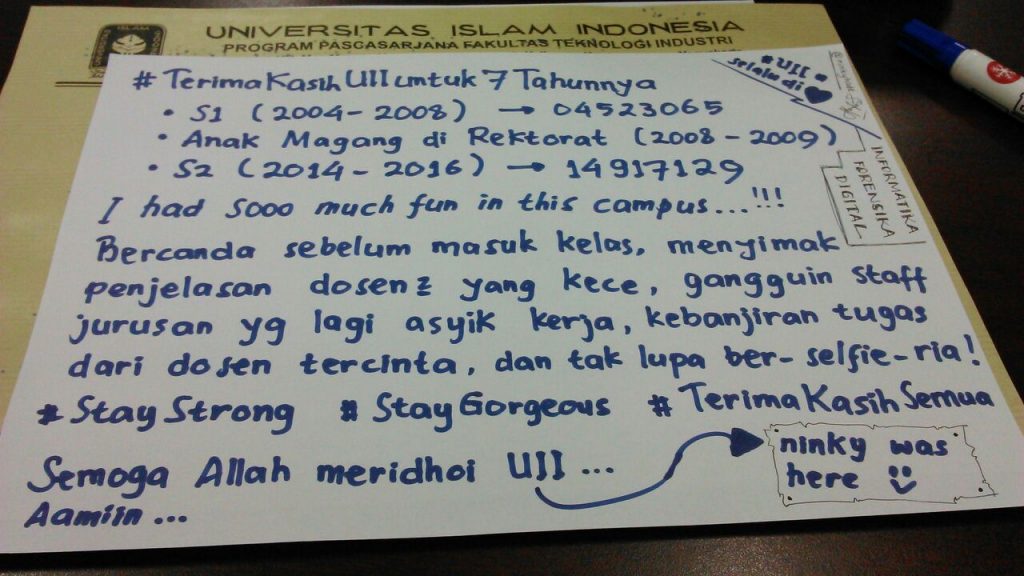 UNIVERSITAS ISLAM INDONESIA
PROGRAM PASCASARJANA FAKULTAS TEKNOLOGI INDUSTRI
# UII
selalu di ♥
# TerimaKasihUIIuntuk7Tahunnya
• S1 (2004-2008) → 04523065
• Anak Magang di Rektorat (2008-2009)
• S2 (2014-2016) → 14917129
INFORMATIKA
FORENSIKA
DIGITAL
I had sooo much fun in this campus...!!!
Bercanda sebelum masuk kelas, menyimak
penjelasan dosenz yang kece, gangguin staff
jurusan yg lagi asyik kerja, kebanjiran tugas
dari dosen tercinta, dan tak lupa ber-selfie-ria!
# StayStrong # StayGorgeous # TerimaKasihSemua
Semoga Allah meridhoi UII ...
Aamiin ...
ninky was
here